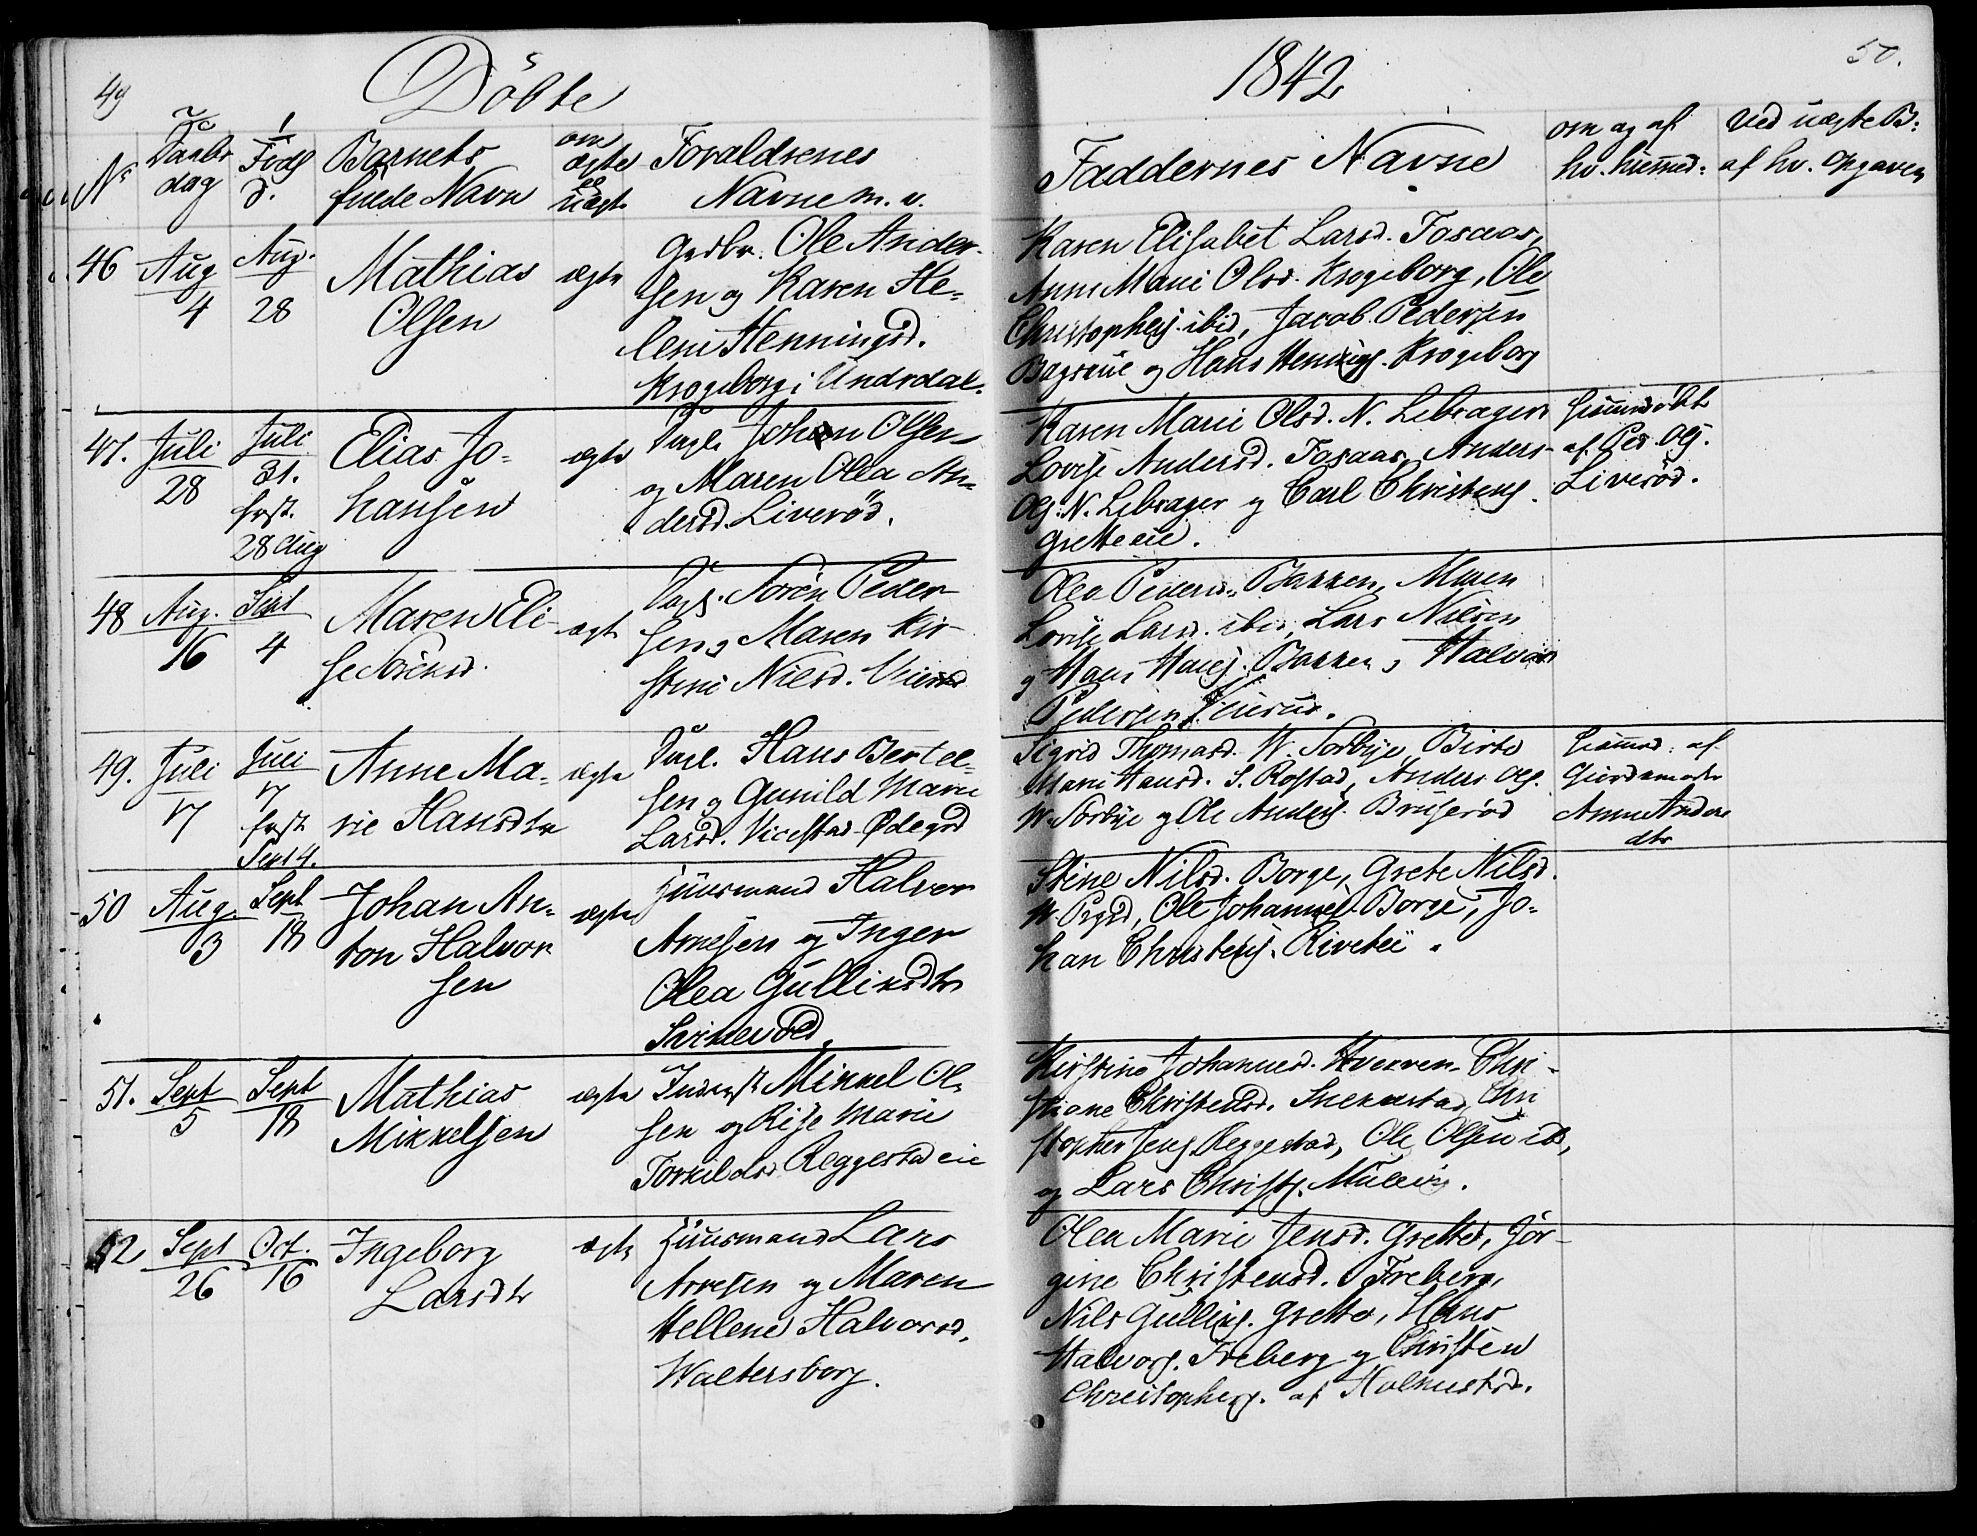 49
Döbte
1842
50.
No
Daabs
dag
Föds
d.
Barnets
fulde Navn
om
ægte
el
uægte
Forældrenes
Navne m. v.
Faddernes Navne
om og af
hv. hiemmed:
Ved uægte B:
af hv. Opgaven
46
Aug
4
Aug.
28
Mathias
Olsen
ægte
Gadbr. Ole Ander-
sen og Karen He-
lene Henningsd.
Krogeborg i Undrdal.
Karen Elisabet Larsd. Fosaas,
Anne Marie Olsd. Krogeborg, Ole
Christophers. ibid, Jacob Pedersen
og Hans Hennings. Krogeborg
47.
Juli
28
Juli
31.
frst.
28 Aug
Elias Jo-
hansen
ægte
Inds. Johan Olsen
og Maren Olea An-
dersd. Liveröd.
Karen Marie Olsd. N. Lebrager
Lovise Andersd. Fosaas, Anders
Ols. N. Lebrager og Carl Christens.
Grette eie.
hiemmedöbt
af Ped. Ols.
Liveröd.
48
Aug.
16
Sept
4
Maren Eli-
se Sörensd.
ægt
Inds. Sören Peder
sen og Maren Kir-
stine Nilsd.
Olea Pedersd. Bakken, Maren
Lovise Larsd. ibid, Lars Nilsen
og Hans Hansj. Bakken, Halvor
Pedersen
49.
Juli
17
Juli
17
frst.
Sept 4.
Anne Ma-
rie Hansdtr
ægte
Inds. Hans Bertel-
sen og Gunild Marie
Larsd. Vicestad Ødegrd
Sigrid Thomasd. W. Sörbye, Birte
Marie Hansd. S. Rostad, Anders Ols.
W. Sörbye og Ole Anders. Bruseröd
hiemmed: af
Giordemoder
Anne Anders
dtr
50
Aug.
3
Sept
18
Johan An-
ton Halvor
sen
ægte
Huusmand Halvor
Arnesen og Inger
Olea Gulliksdtr
Skinevold.
Stine Nilsd. Borge, Grete Nilsd.
Ole Johannes. Borge, Jo-
han Christens.
51.
Sept
5
Sept
18
Mathias
Mikkelsen
ægte
Inderst Mikkel Ol-
sen og Rise Marie
Torkildsd. Reggestad eie
Kirstine Johannesd. Hvarven, Chri-
stiane Christensd. Snekkestad, Chri
stopher Jens. Reggestad, Ole Olsen ib,
og Lars Christs.
52
Sept
26
Oct.
16
Ingeborg
Larsdtr
ægte
Huusmand Lars
Arnesen og Maren
Hellene Halvorsd.
Waltersborg.
Olea Marie Jensd. Grette, Jör-
gine Christensd. Freberg,
Nils Gulliks. Grette, Hans
Halvors. Freberg og Christen
Christophers. af Holmestrd.